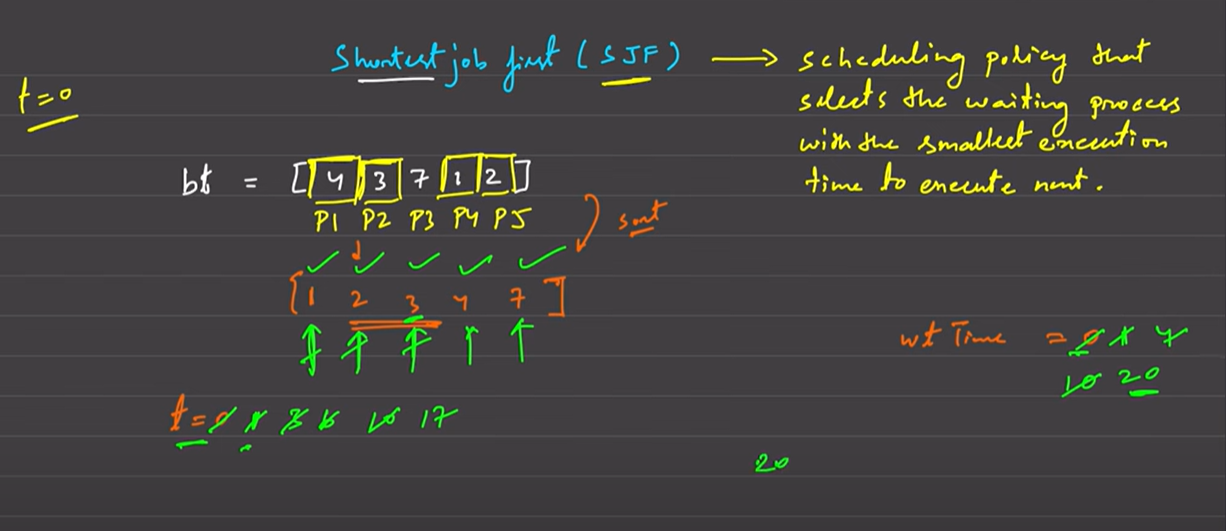 Shortest job first (SJF) → scheduling policy that
selects the waiting process
with the smallest execution
time to execute next.
t=0
bt = [4 3 7 1 2]
P1 P2 P3 P4 P5
sort
[1 2 3 4 7]
wt Time = 0 1 4
10 20
t = 0 1 3 6 10 17
20